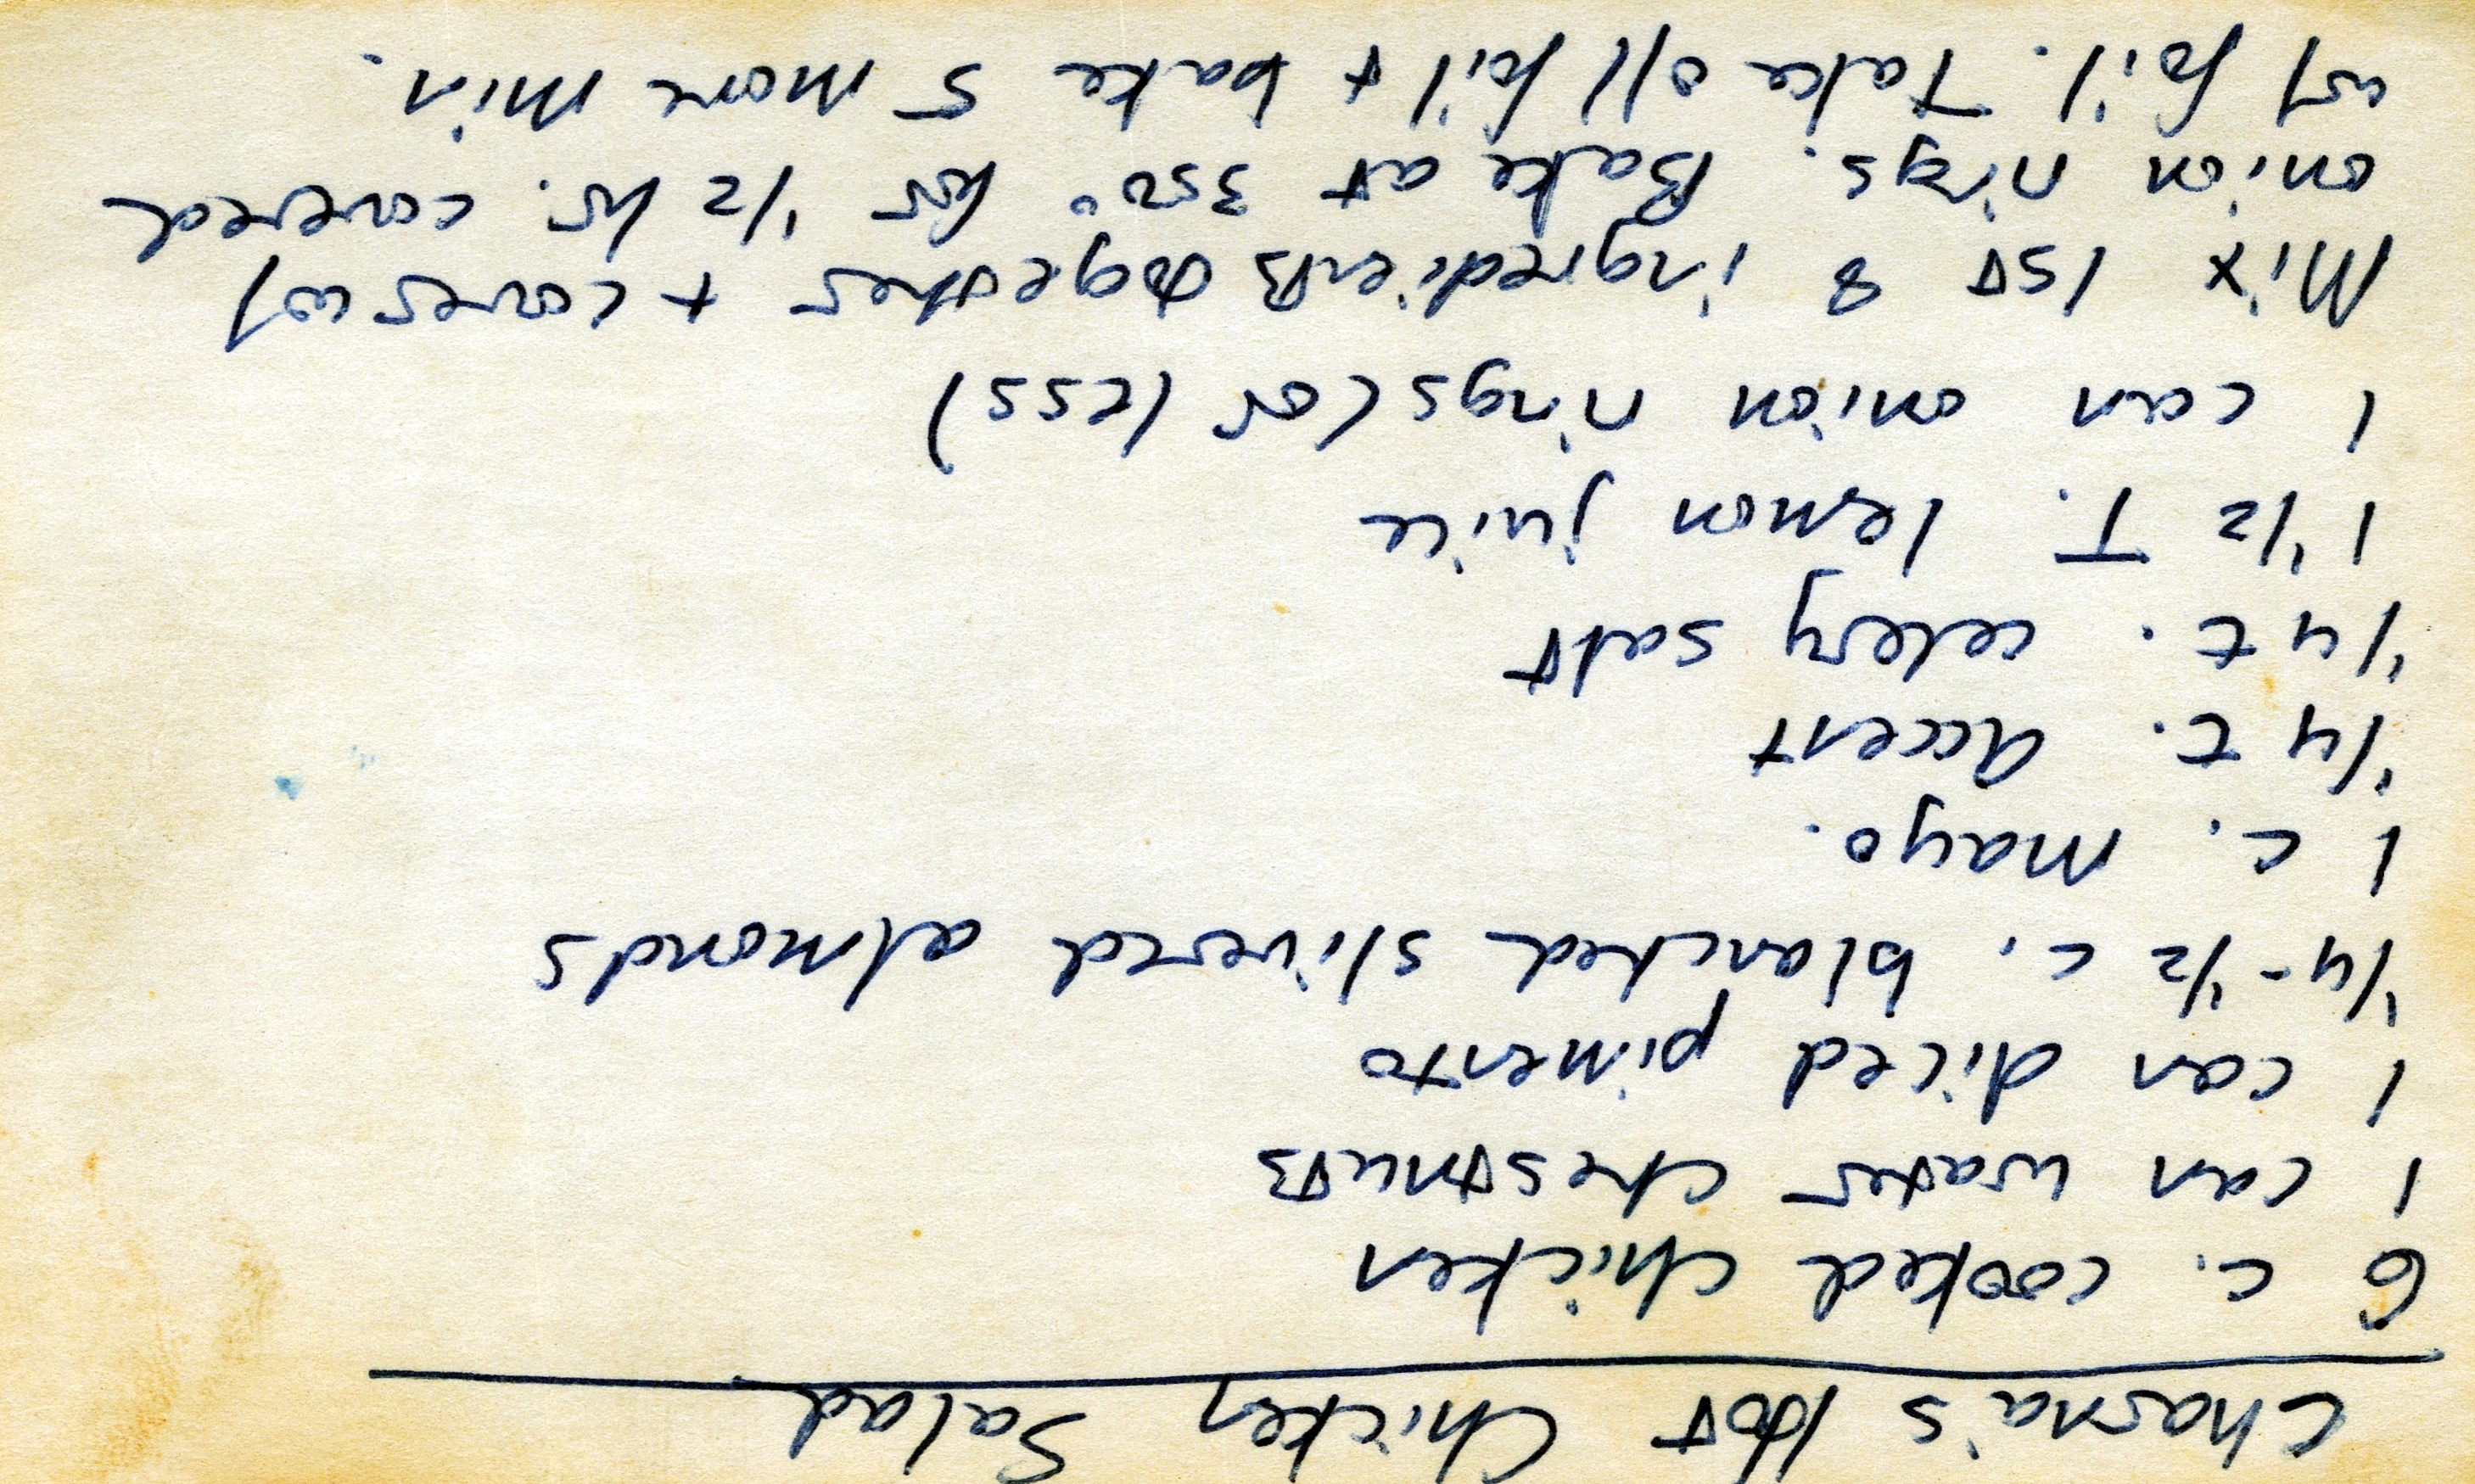 Charna's Hot Chicken Salad
6 c. cooked chicken
1 can water chestnuts
1 can diced pimento
1/4-1/2 c. blanched slivered almonds
1 c. mayo.
1/4 t. Accent
1/4 t. celery salt
1 1/2 T. lemon juice
1 can onion rings (or less)
Mix 1st 8 ingredients together + cover w/
onion rings. Bake at 350° for 1/2 hr. covered
w/ foil. Take off foil + bake 5 more min.